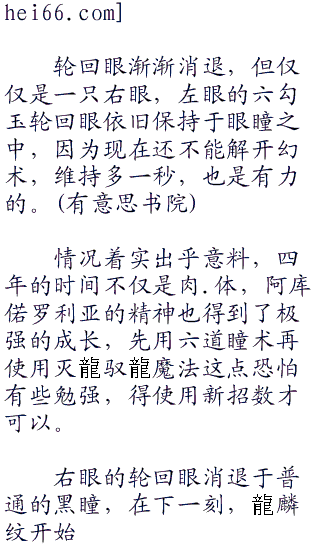 hei66.com]
轮回眼渐渐消退，但仅
仅是一只右眼，左眼的六勾
玉轮回眼依旧保持于眼瞳之
中，因为现在还不能解开幻
术，维持多一秒，也是有力
的。(有意思书院)
情况着实出乎意料，四
年的时间不仅是肉.体，阿库
偌罗利亚的精神也得到了极
强的成长，先用六道瞳术再
使用灭龍驭龍魔法这点恐怕
有些勉强，得使用新招数才
可以。
右眼的轮回眼消退于普
通的黑瞳，在下一刻，龍麟
纹开始